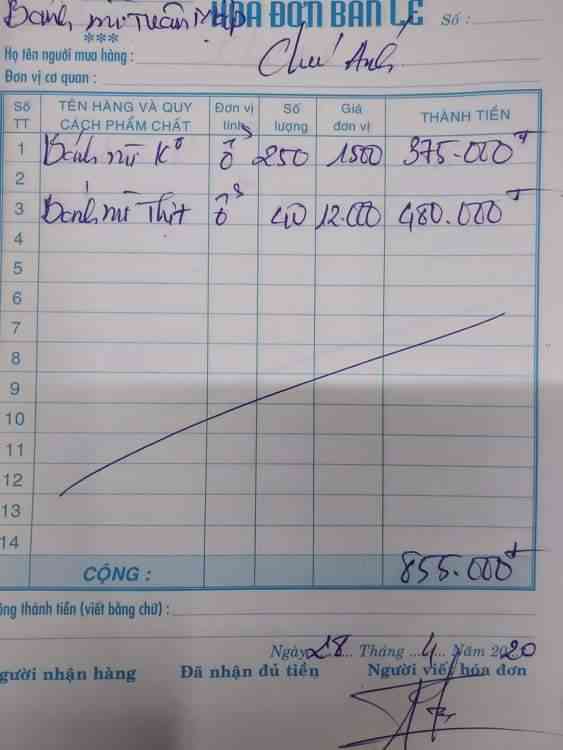 Bánh mì Tuấn Mập HÓA ĐƠN BÁN LẺ Số :
***
Họ tên người mua hàng : Chú Anh
Đơn vị cơ quan :
Số TT TÊN HÀNG VÀ QUY CÁCH PHẨM CHẤT Đơn vị tính Số lượng Giá đơn vị THÀNH TIỀN
1 Bánh mì Ko ổ 250 1500 375.000đ
2
3 Bánh mì Thịt ổ 40 12.000 480.000đ
4
5
6
7
8
9
10
11
12
13
14
CỘNG : 855.000đ
ộng thành tiền (viết bằng chữ) :
Ngày 28 Tháng 4 Năm 2020
gười nhận hàng Đã nhận đủ tiền Người viết hóa đơn